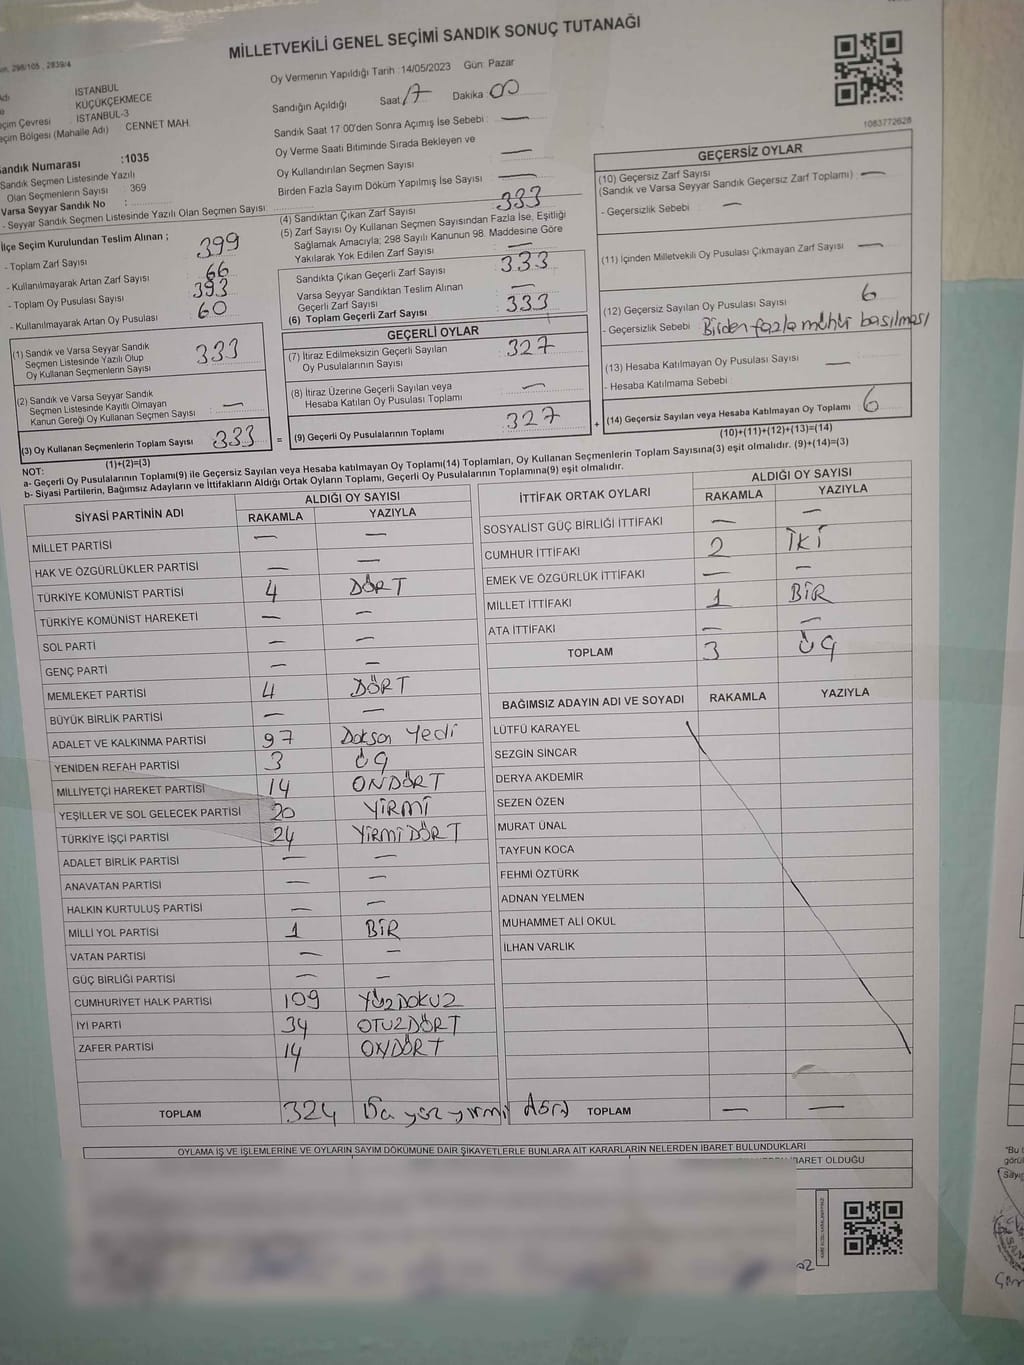 MİLLETVEKİLİ GENEL SEÇİMİ SANDIK SONUÇ TUTANAĞI
298/105 , 2839/4
İSTANBUL
KÜÇÜKÇEKMECE
İSTANBUL-3
CENNET MAH.
Sandık Numarası :1035
Sandık Seçmen Listesinde Yazılı
Olan Seçmenlerin Sayısı : 369
Varsa Seyyar Sandık No :
- Seyyar Sandık Seçmen Listesinde Yazılı Olan Seçmen Sayısı:
Oy Vermenin Yapıldığı Tarih :14/05/2023 Gün: Pazar
Sandığın Açıldığı Saat 17 Dakika 00
Sandık Saat 17:00'den Sonra Açımış İse Sebebi : —
Oy Verme Saati Bitiminde Sırada Bekleyen ve
Oy Kullandırılan Seçmen Sayısı —
Birden Fazla Sayım Döküm Yapılmış İse Sayısı —
1083772628
İlçe Seçim Kurulundan Teslim Alınan ;
- Toplam Zarf Sayısı 399
- Kullanılmayarak Artan Zarf Sayısı 66
- Toplam Oy Pusulası Sayısı 393
- Kullanılmayarak Artan Oy Pusulası 60
(1) Sandık ve Varsa Seyyar Sandık
Seçmen Listesinde Yazılı Olup
Oy Kullanan Seçmenlerin Sayısı 333
(2) Sandık ve Varsa Seyyar Sandık
Seçmen Listesinde Kayıtlı Olmayan
Kanun Gereği Oy Kullanan Seçmen Sayısı : —
(3) Oy Kullanan Seçmenlerin Toplam Sayısı : 333
(1)+(2)=(3)
(4) Sandıktan Çıkan Zarf Sayısı 333
(5) Zarf Sayısı Oy Kullanan Seçmen Sayısından Fazla İse, Eşitliği
Sağlamak Amacıyla; 298 Sayılı Kanunun 98. Maddesine Göre
Yakılarak Yok Edilen Zarf Sayısı —
Sandıkta Çıkan Geçerli Zarf Sayısı : 333
Varsa Seyyar Sandıktan Teslim Alınan
Geçerli Zarf Sayısı : —
(6) Toplam Geçerli Zarf Sayısı : 333
GEÇERLİ OYLAR
(7) İtiraz Edilmeksizin Geçerli Sayılan
Oy Pusulalarının Sayısı : 327
(8) İtiraz Üzerine Geçerli Sayılan veya
Hesaba Katılan Oy Pusulası Toplamı : —
= (9) Geçerli Oy Pusulalarının Toplamı : 327
GEÇERSİZ OYLAR
(10) Geçersiz Zarf Sayısı
(Sandık ve Varsa Seyyar Sandık Geçersiz Zarf Toplamı) : —
- Geçersizlik Sebebi : —
(11) İçinden Milletvekili Oy Pusulası Çıkmayan Zarf Sayısı : —
(12) Geçersiz Sayılan Oy Pusulası Sayısı : 6
- Geçersizlik Sebebi : Birden fazla mühür basılması
(13) Hesaba Katılmayan Oy Pusulası Sayısı : —
- Hesaba Katılmama Sebebi :
+ (14) Geçersiz Sayılan veya Hesaba Katılmayan Oy Toplamı : 6
(10)+(11)+(12)+(13)=(14)
NOT:
a- Geçerli Oy Pusulalarının Toplamı(9) ile Geçersiz Sayılan veya Hesaba katılmayan Oy Toplamı(14) Toplamları, Oy Kullanan Seçmenlerin Toplam Sayısına(3) eşit olmalıdır. (9)+(14)=(3)
b- Siyasi Partilerin, Bağımsız Adayların ve İttifakların Aldığı Ortak Oyların Toplamı, Geçerli Oy Pusulalarının Toplamına(9) eşit olmalıdır.
SİYASİ PARTİNİN ADI ALDIĞI OY SAYISI
RAKAMLA YAZIYLA
MİLLET PARTİSİ — —
HAK VE ÖZGÜRLÜKLER PARTİSİ — —
TÜRKİYE KOMÜNİST PARTİSİ 4 DÖRT
TÜRKİYE KOMÜNİST HAREKETİ — —
SOL PARTİ — —
GENÇ PARTİ — —
MEMLEKET PARTİSİ 4 DÖRT
BÜYÜK BİRLİK PARTİSİ — —
ADALET VE KALKINMA PARTİSİ 97 Doksan Yedi
YENİDEN REFAH PARTİSİ 3 ÜÇ
MİLLİYETÇİ HAREKET PARTİSİ 14 ONDÖRT
YEŞİLLER VE SOL GELECEK PARTİSİ 20 YİRMİ
TÜRKİYE İŞÇİ PARTİSİ 24 YİRMİ DÖRT
ADALET BİRLİK PARTİSİ — —
ANAVATAN PARTİSİ — —
HALKIN KURTULUŞ PARTİSİ — —
MİLLİ YOL PARTİSİ 1 BİR
VATAN PARTİSİ — —
GÜÇ BİRLİĞİ PARTİSİ — —
CUMHURİYET HALK PARTİSİ 109 YÜZDOKUZ
İYİ PARTİ 34 OTUZDÖRT
ZAFER PARTİSİ 14 ONDÖRT
TOPLAM 324 yüz yirmi dört
İTTİFAK ORTAK OYLARI ALDIĞI OY SAYISI
RAKAMLA YAZIYLA
SOSYALİST GÜÇ BİRLİĞİ İTTİFAKI — —
CUMHUR İTTİFAKI 2 İKİ
EMEK VE ÖZGÜRLÜK İTTİFAKI — —
MİLLET İTTİFAKI 1 BİR
ATA İTTİFAKI — —
TOPLAM 3 ÜÇ
BAĞIMSIZ ADAYIN ADI VE SOYADI RAKAMLA YAZIYLA
LÜTFÜ KARAYEL
SEZGİN SİNCAR
DERYA AKDEMİR
SEZEN ÖZEN
MURAT ÜNAL
TAYFUN KOCA
FEHMİ ÖZTÜRK
ADNAN YELMEN
MUHAMMET ALİ OKUL
İLHAN VARLIK
TOPLAM — —
OYLAMA İŞ VE İŞLEMLERİNE VE OYLARIN SAYIM DÖKÜMÜNE DAİR ŞİKAYETLERLE BUNLARA AİT KARARLARIN NELERDEN İBARET BULUNDUKLARI
OLDUĞU